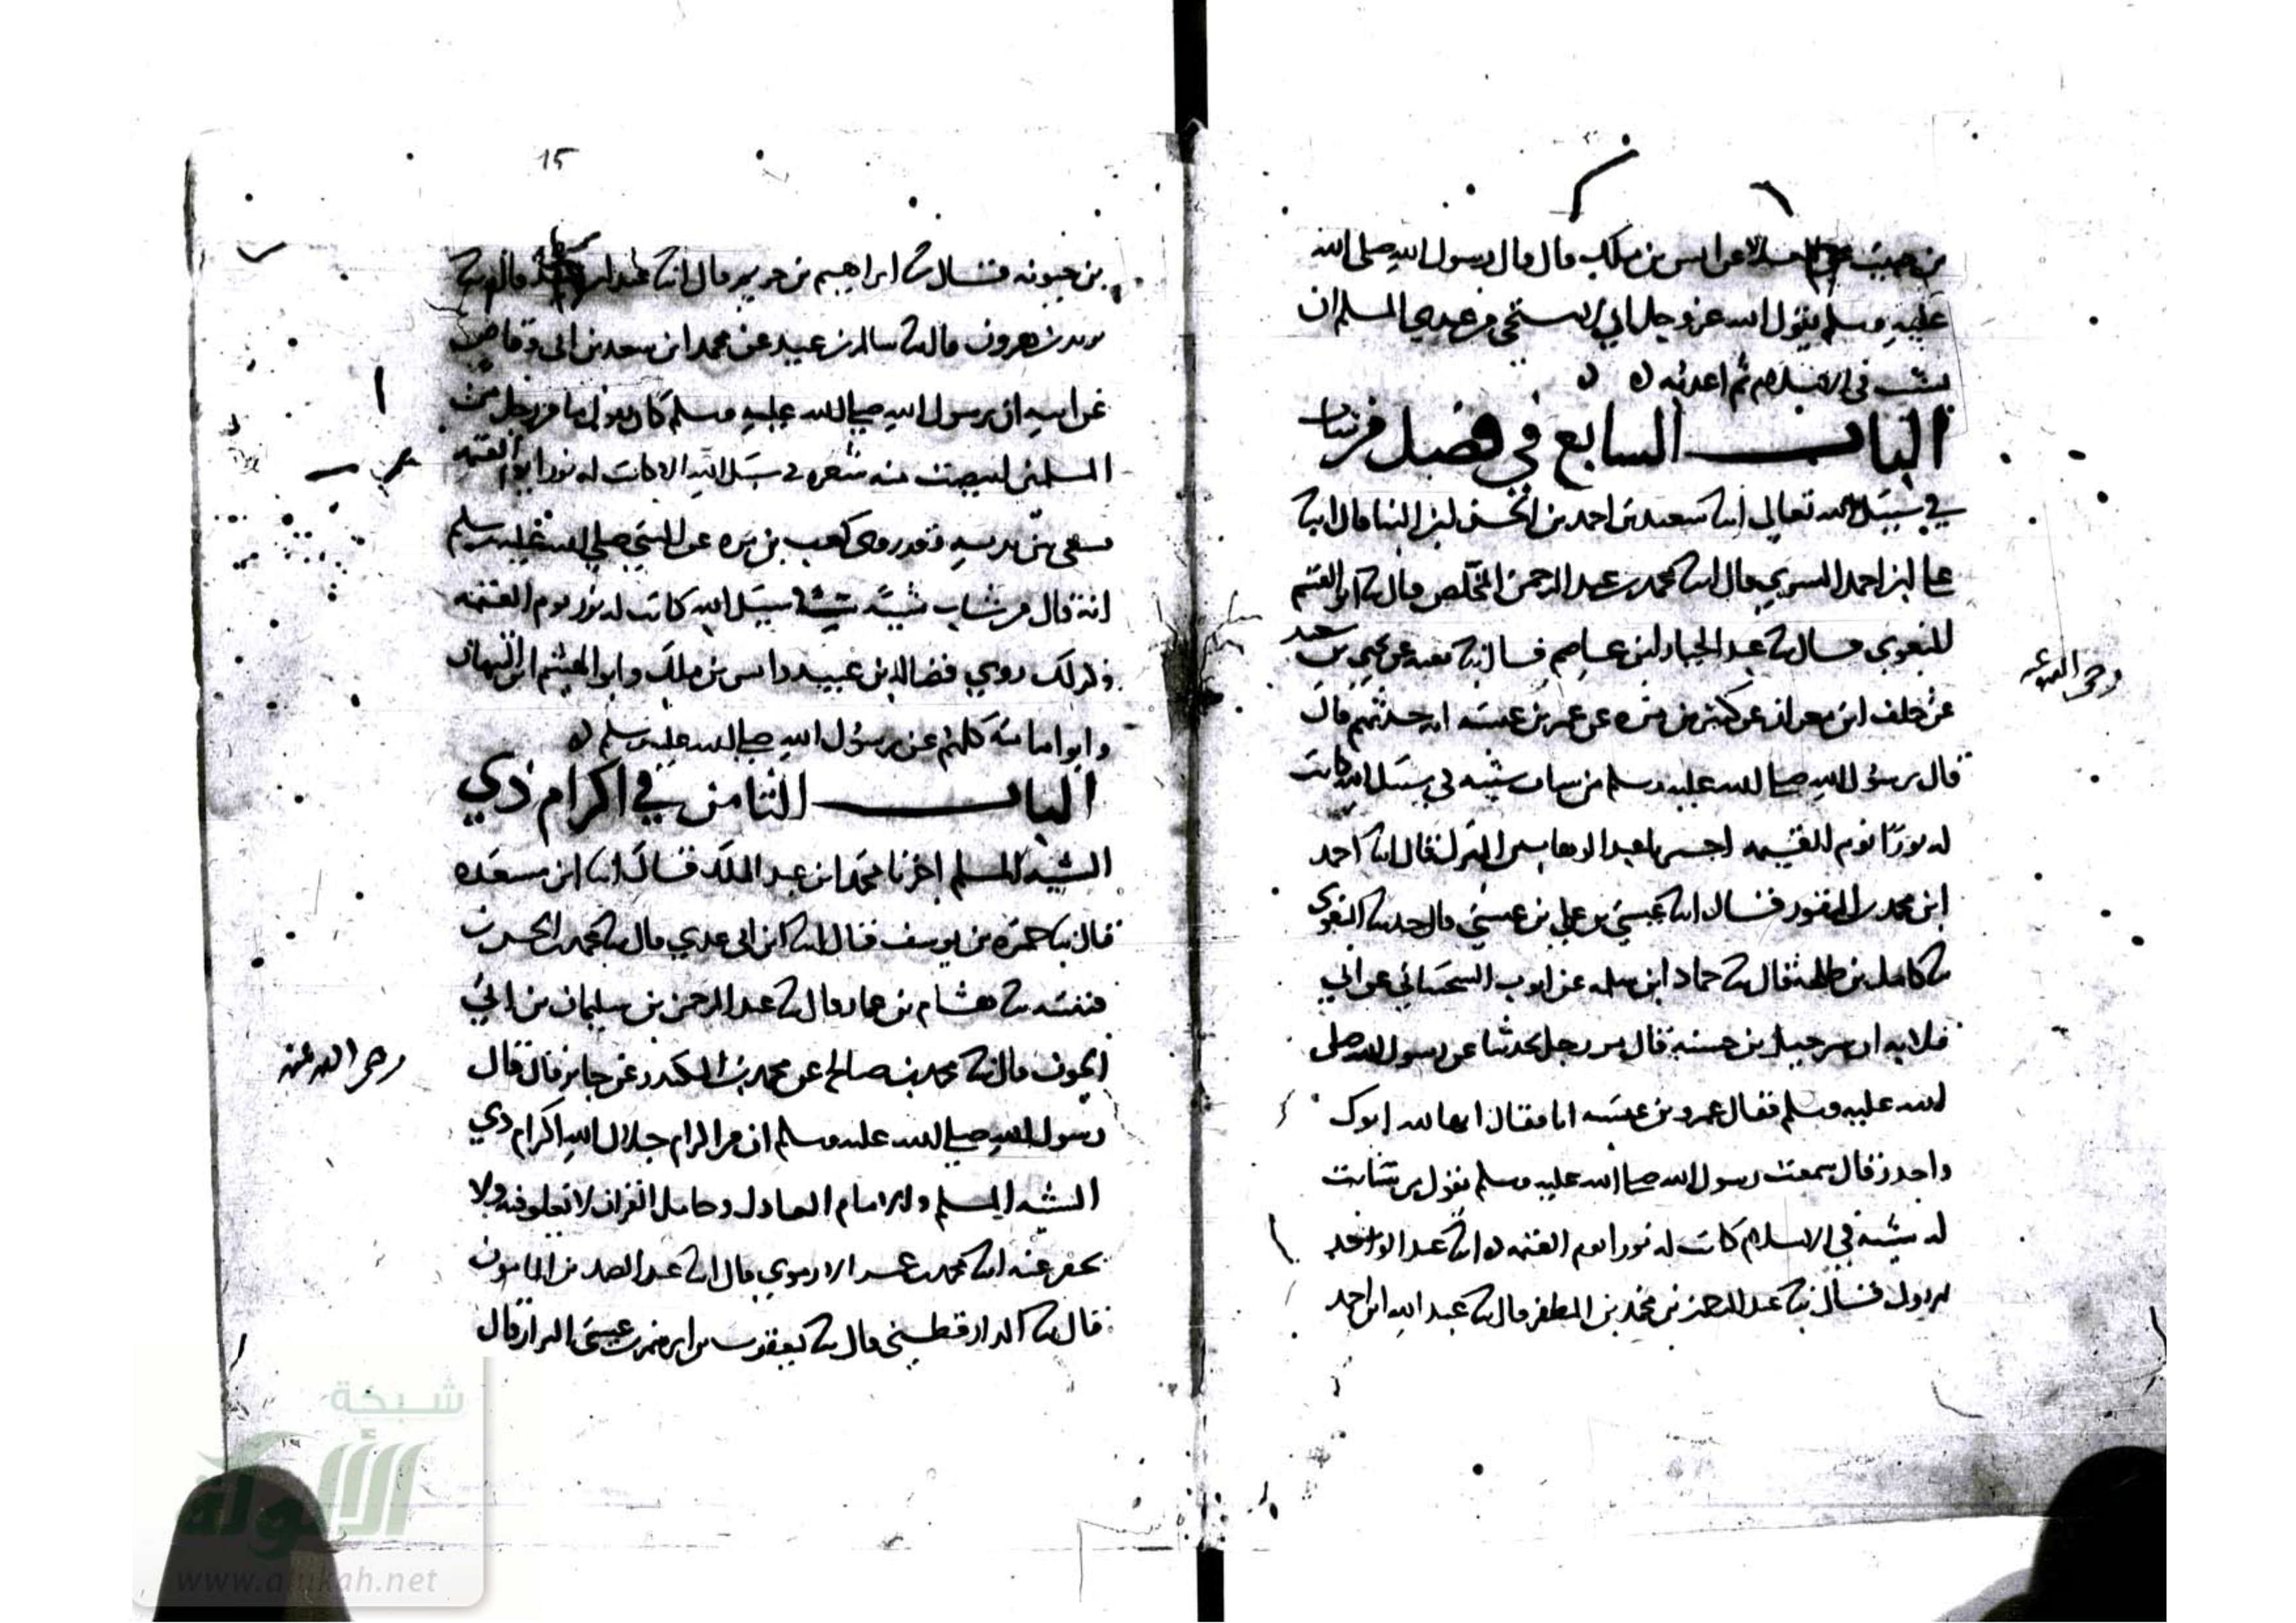 عن انس بن ملك قال قال رسول الله صلى الله
عليه وسلم يقول الله عز وجل اني لاستحي من عبدي المسلم ان
يشيب في الاسلام ثم اعذبه ه ه
الباب السابع في فضل من شاب
في سبيل الله تعالى انا سعيد بن احمد بن الحسن ابن البنا قال انا
علي ابن احمد البسري قال انا محمد بن عبد الرحمن المخلص قال نا ابو القسم
البغوي قال نا عبد الجبار ابن عاصم قال نا بقيه عن يحيى بن سعد
عن خلف ابن معدان عن كثير بن مره عن عمر بن عبسه انه حدثهم قال
قال رسول الله صلى الله عليه وسلم من شاب شيبه في سبيل الله كانت
له نورا يوم القيمه اخبرنا عبد الوهاب ابن المبرك قال انا احمد
ابن محمد بن النقور قال انا عيسى بن علي بن عيسى قال حدثنا البغوي
نا كامل بن طلحة قال نا حماد ابن سلمه عن ايوب السختياني عن ابي
قلابه ان شرحبيل بن حسنه قال من رجل يحدثنا عن رسول الله صلى
الله عليه وسلم فقال عمرو بن عبسه انا فقال ايها لله ابوك
واحذر قال سمعت رسول الله صلى الله عليه وسلم يقول من شابت
له شيبة في الاسلام كانت له نورا يوم القيمه ه انا عبد الاول
قال نا عبد الرحمن بن محمد بن المظفر قال نا عبد الله ابن احمد
رضي الله عنه
15
بن حمويه قال نا ابراهيم بن خريم قال انا عبد ابن حميد قال نا
يزيد بن هرون قال نا سالم بن عبيد عن محمد ابن سعد بن ابي وقاص
عن ابيه ان رسول الله صلى الله عليه وسلم كان يقول ما من رجل من
المسلمين ابيضت منه شعره في سبيل الله الا كانت له نورا يوم القيمه
يسعى بين يديه وقد روى كعب بن مره عن النبي صلى الله عليه وسلم
انه قال من شاب شيبة في سبيل الله كانت له نور يوم القيمه
وكذلك روى فضالة بن عبيد وانس بن ملك وابو الهيثم ابن التيهان
وابو امامة كلهم عن رسول الله صلى الله عليه وسلم ه
الباب الثامن في اكرام ذي
الشيبه المسلم اخبرنا محمد ابن عبد الملك قال انا ابن مسعده
قال نا حمزه بن يوسف قال انا ابن ابي عدي قال نا محمد بن الحسن بن
قتيبه نا هشام بن عمار قال نا عبد الرحمن بن سليمان بن ابي
الجون قال نا محمد بن صالح عن محمد بن المنكدر عن جابر قال قال
رسول الله صلى الله عليه وسلم ان من اكرام جلال الله اكرام ذي
الشيبه المسلم والامام العادل وحامل القران لا تغلو فيه ولا
تجفو عنه انا محمد بن عمر الارموي قال انا عبد الصمد بن المامون
قال نا الدارقطني قال نا يعقوب بن ابرهيم بن عيسى البزاز قال
رضي الله عنه
شبكة
الألوكة
www.alukah.net